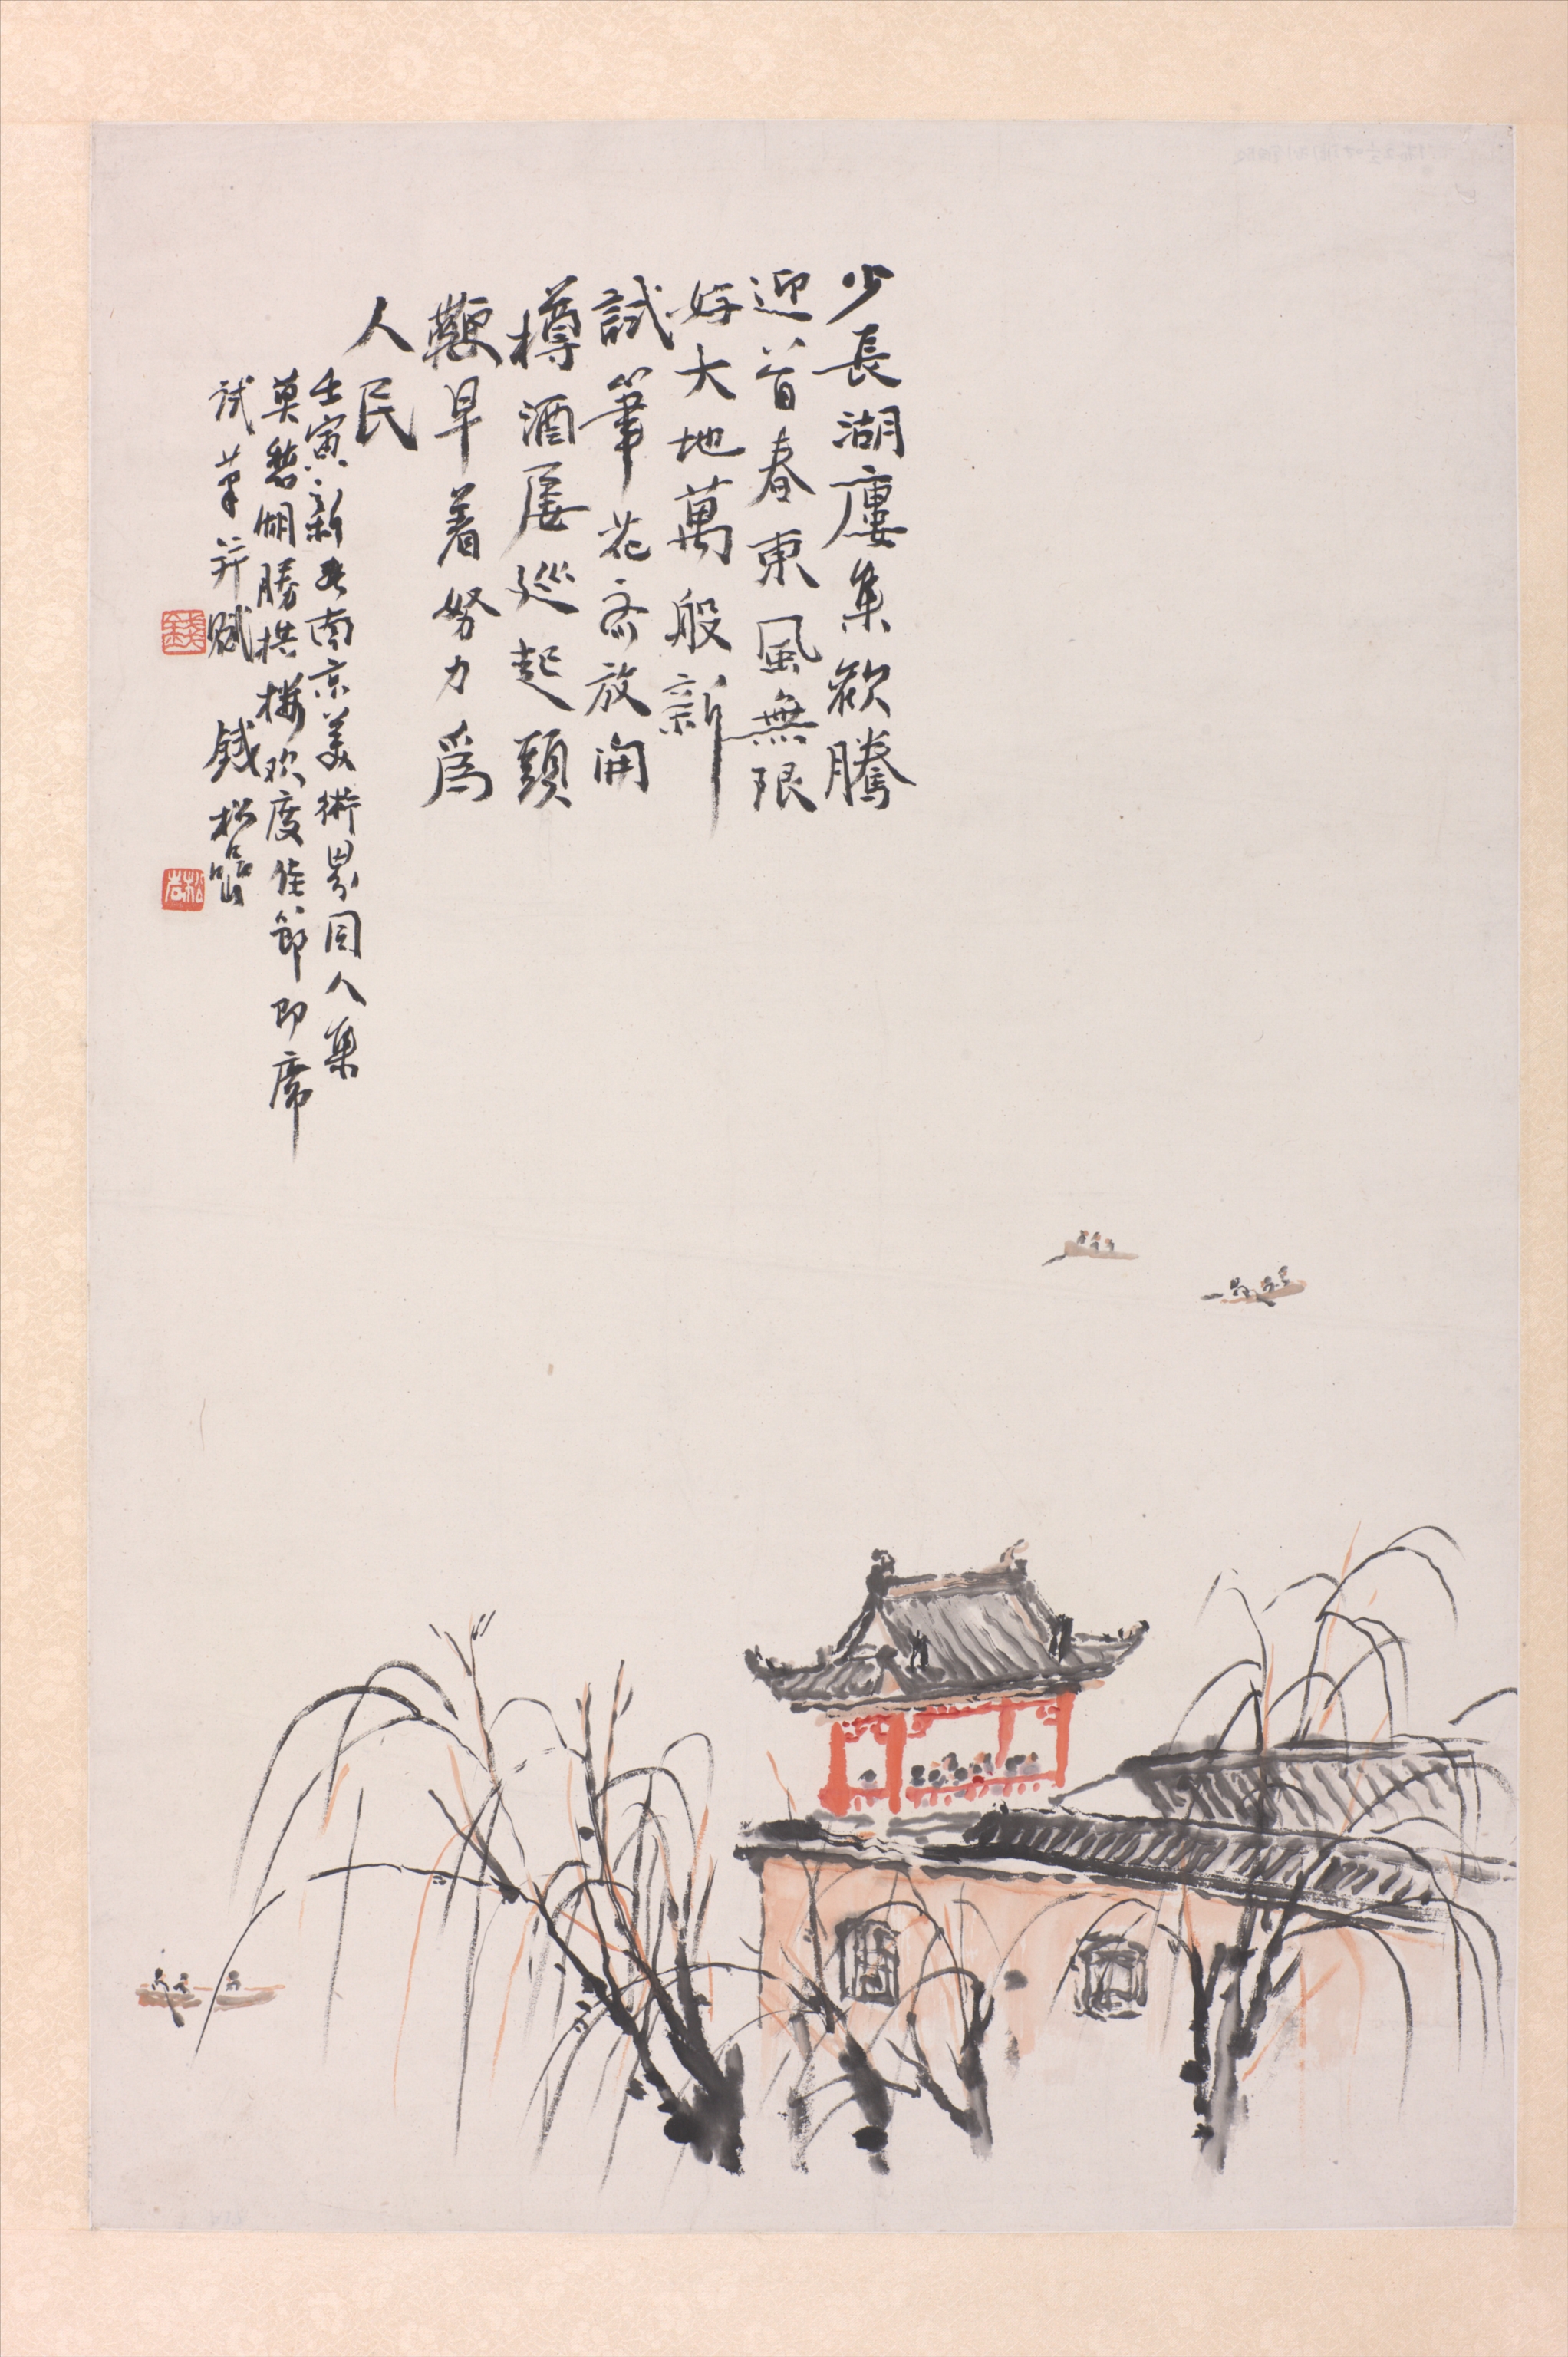 少長湖廔集歡騰
迎首春東風無限
好大地萬般新
試筆花齐放開
樽酒屡巡起頭
鞭早着努力爲
人民
壬寅新春南京美術界同人集
莫愁湖勝棋楼欢度佳節即席
试筆并赋 錢松喦
錢
松喦